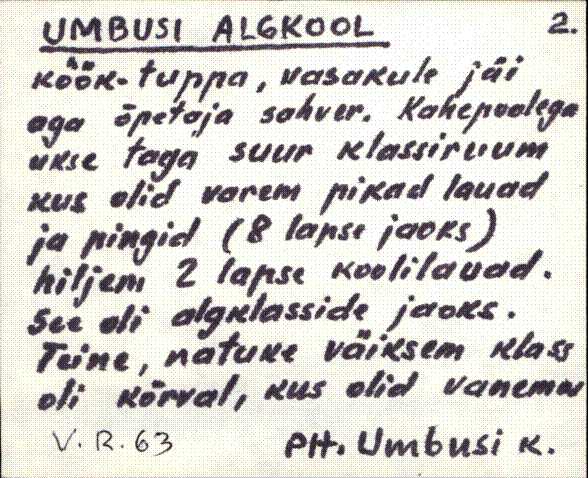 UMBUSI ALGKOOL 2.
köök-tuppa, vasakule jäi
aga õpetaja sahver. Kahepoolega
ukse taga suur klassiruum
kus olid varem pikad lauad
ja pingid (8 lapse jaoks)
hiljem 2 lapse koolilauad.
See oli algklasside jaoks.
Teine, natuke väiksem klass
oli kõrval, kus olid vanemw
V. R. 63 PH. Umbusi k.